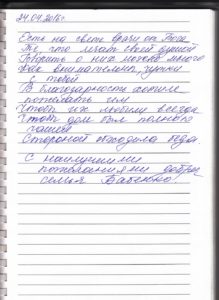 24.04.2018г.
Есть на свете врачи от Бога
Те, что лечат своей душой
Говорить о них можно много
Как внимательны, чутки
с тобой
В благодарность хотите
пожелать им
Чтоб их любили всегда
Чтоб дом был полною
чашей
Стороной обходила беда
С наилучшими
пожеланиями добра
семья Бабенко